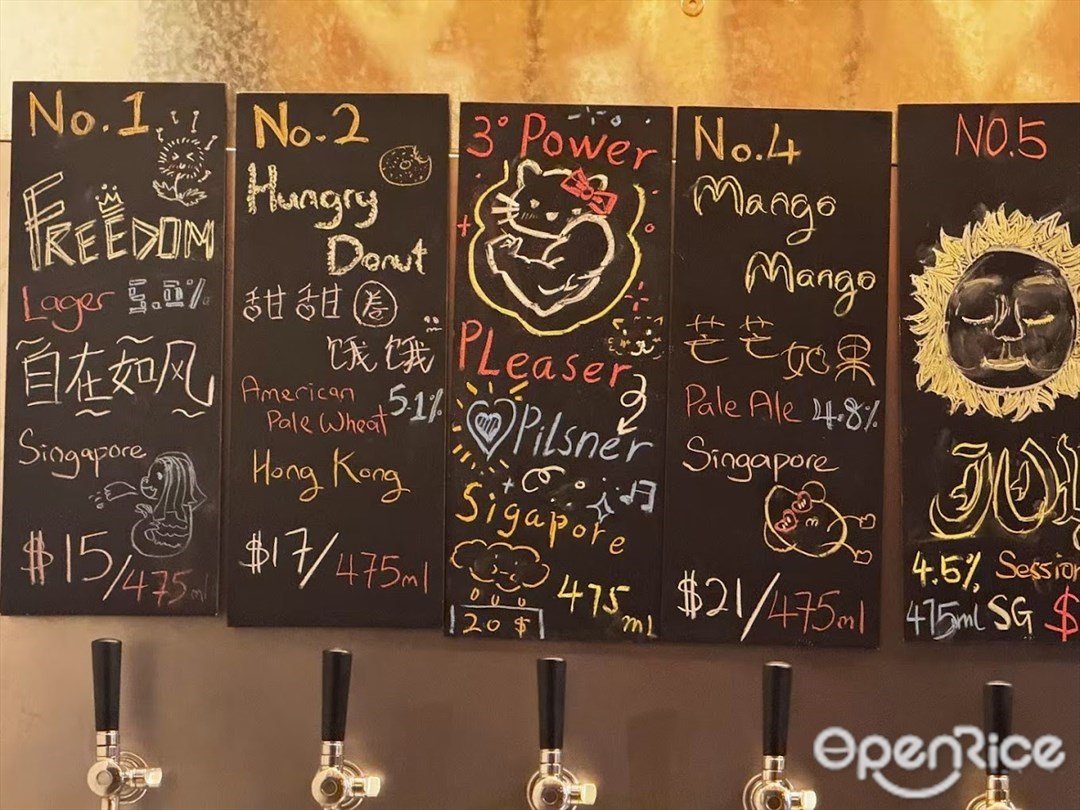 No.1
FREEDOM
Lager 5.0%
自在如风
Singapore
$15/475ml
No.2
Hungry
Donut
甜甜圈
饿饿
American
Pale Wheat 5.1%
Hong Kong
$17/475ml
3° Power
PLeaser
Pilsner
Sigapore
475
ml
20$
No.4
Mango
Mango
芒芒如果
Pale Ale 4.8%
Singapore
$21/475ml
NO.5
4.5% Session
475ml SG $
OpenRice